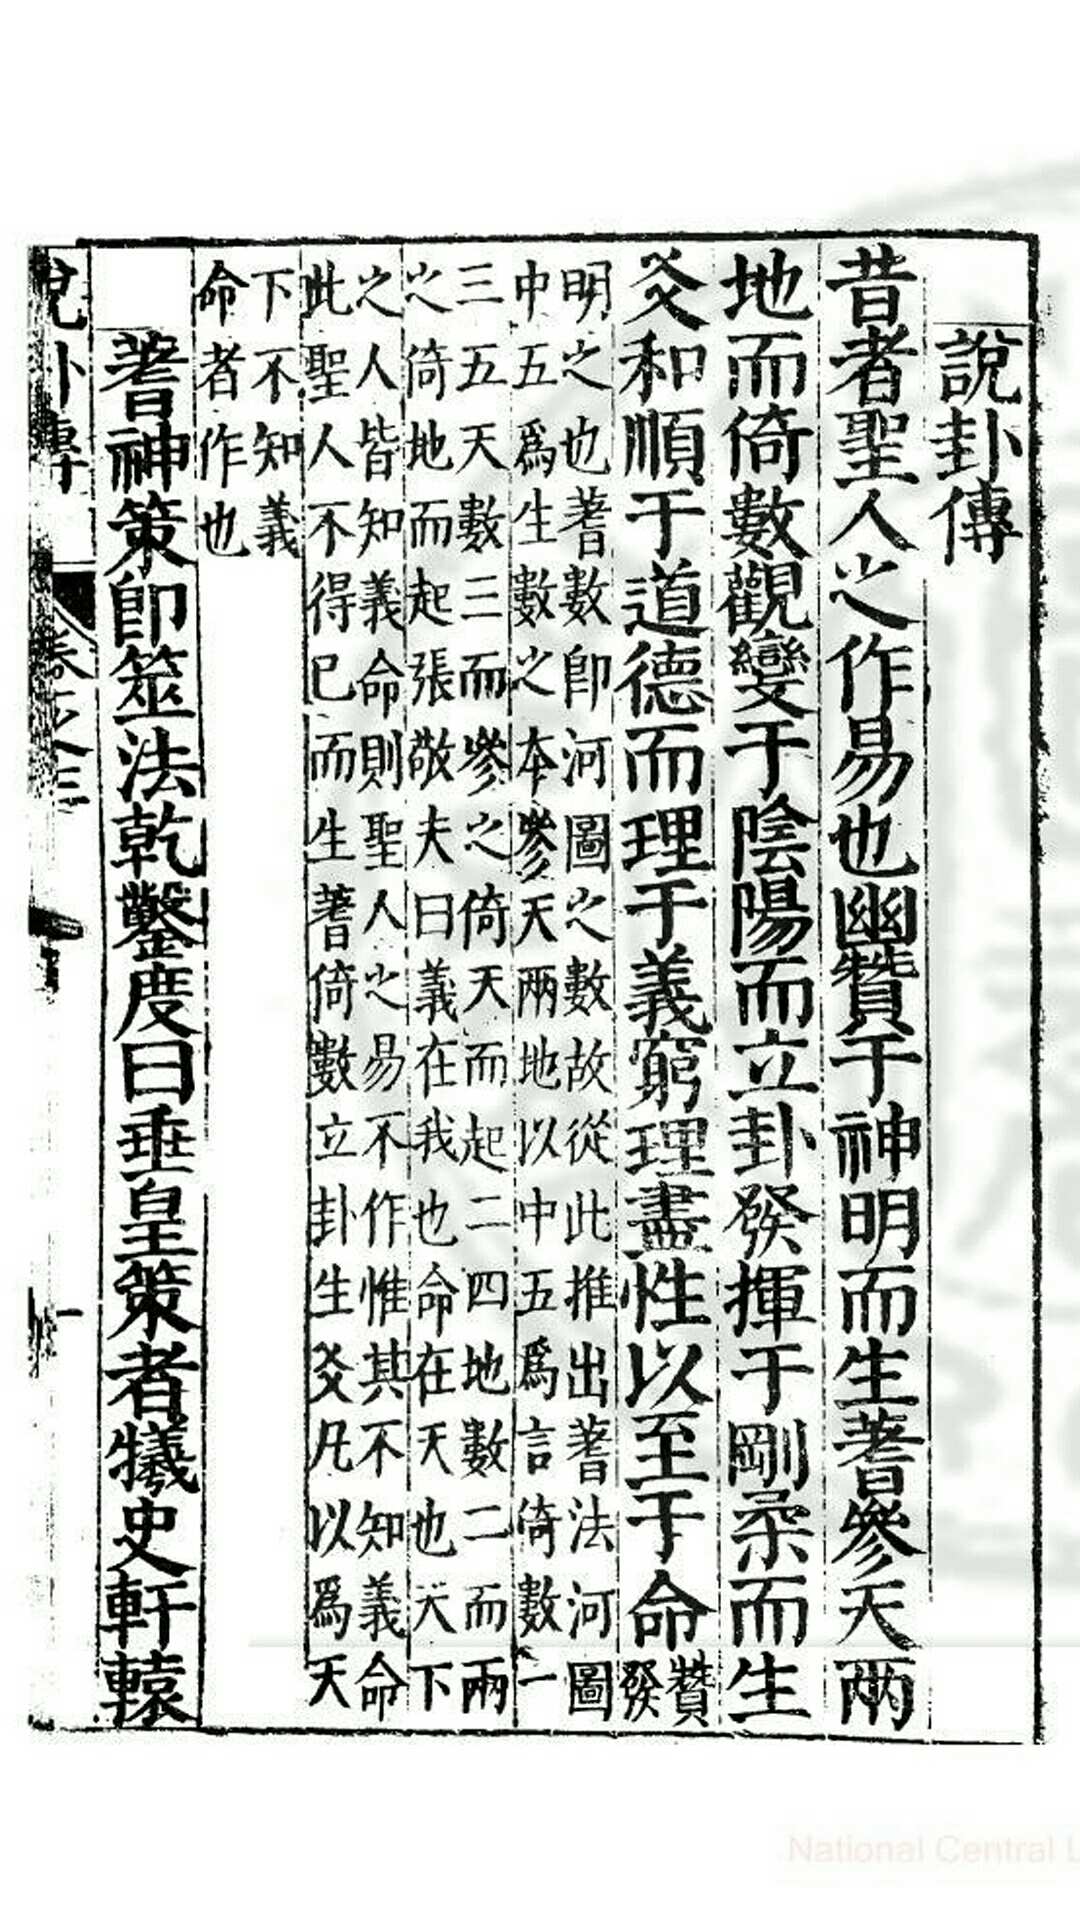 說卦傳
昔者聖人之作易也幽贊于神明而生蓍參天兩
地而倚數觀變于陰陽而立卦發揮于剛柔而生
爻和順于道德而理于義窮理盡性以至于命
贊
發
明之也蓍數卽河圖之數故從此推出蓍法河圖
中五爲生數之本參天兩地以中五爲言倚數一
三五天數三而參之倚天而起二四地數二而兩
之倚地而起張敬夫曰義在我也命在天也天下
之人皆知義命則聖人之易不作惟其不知義命
此聖人不得已而生蓍倚數立卦生爻凡以爲天
下不知義
命者作也
蓍神策卽筮法乾鑿度曰垂皇策者犧史軒轅
說卦傳
卷之三
一
National Central L